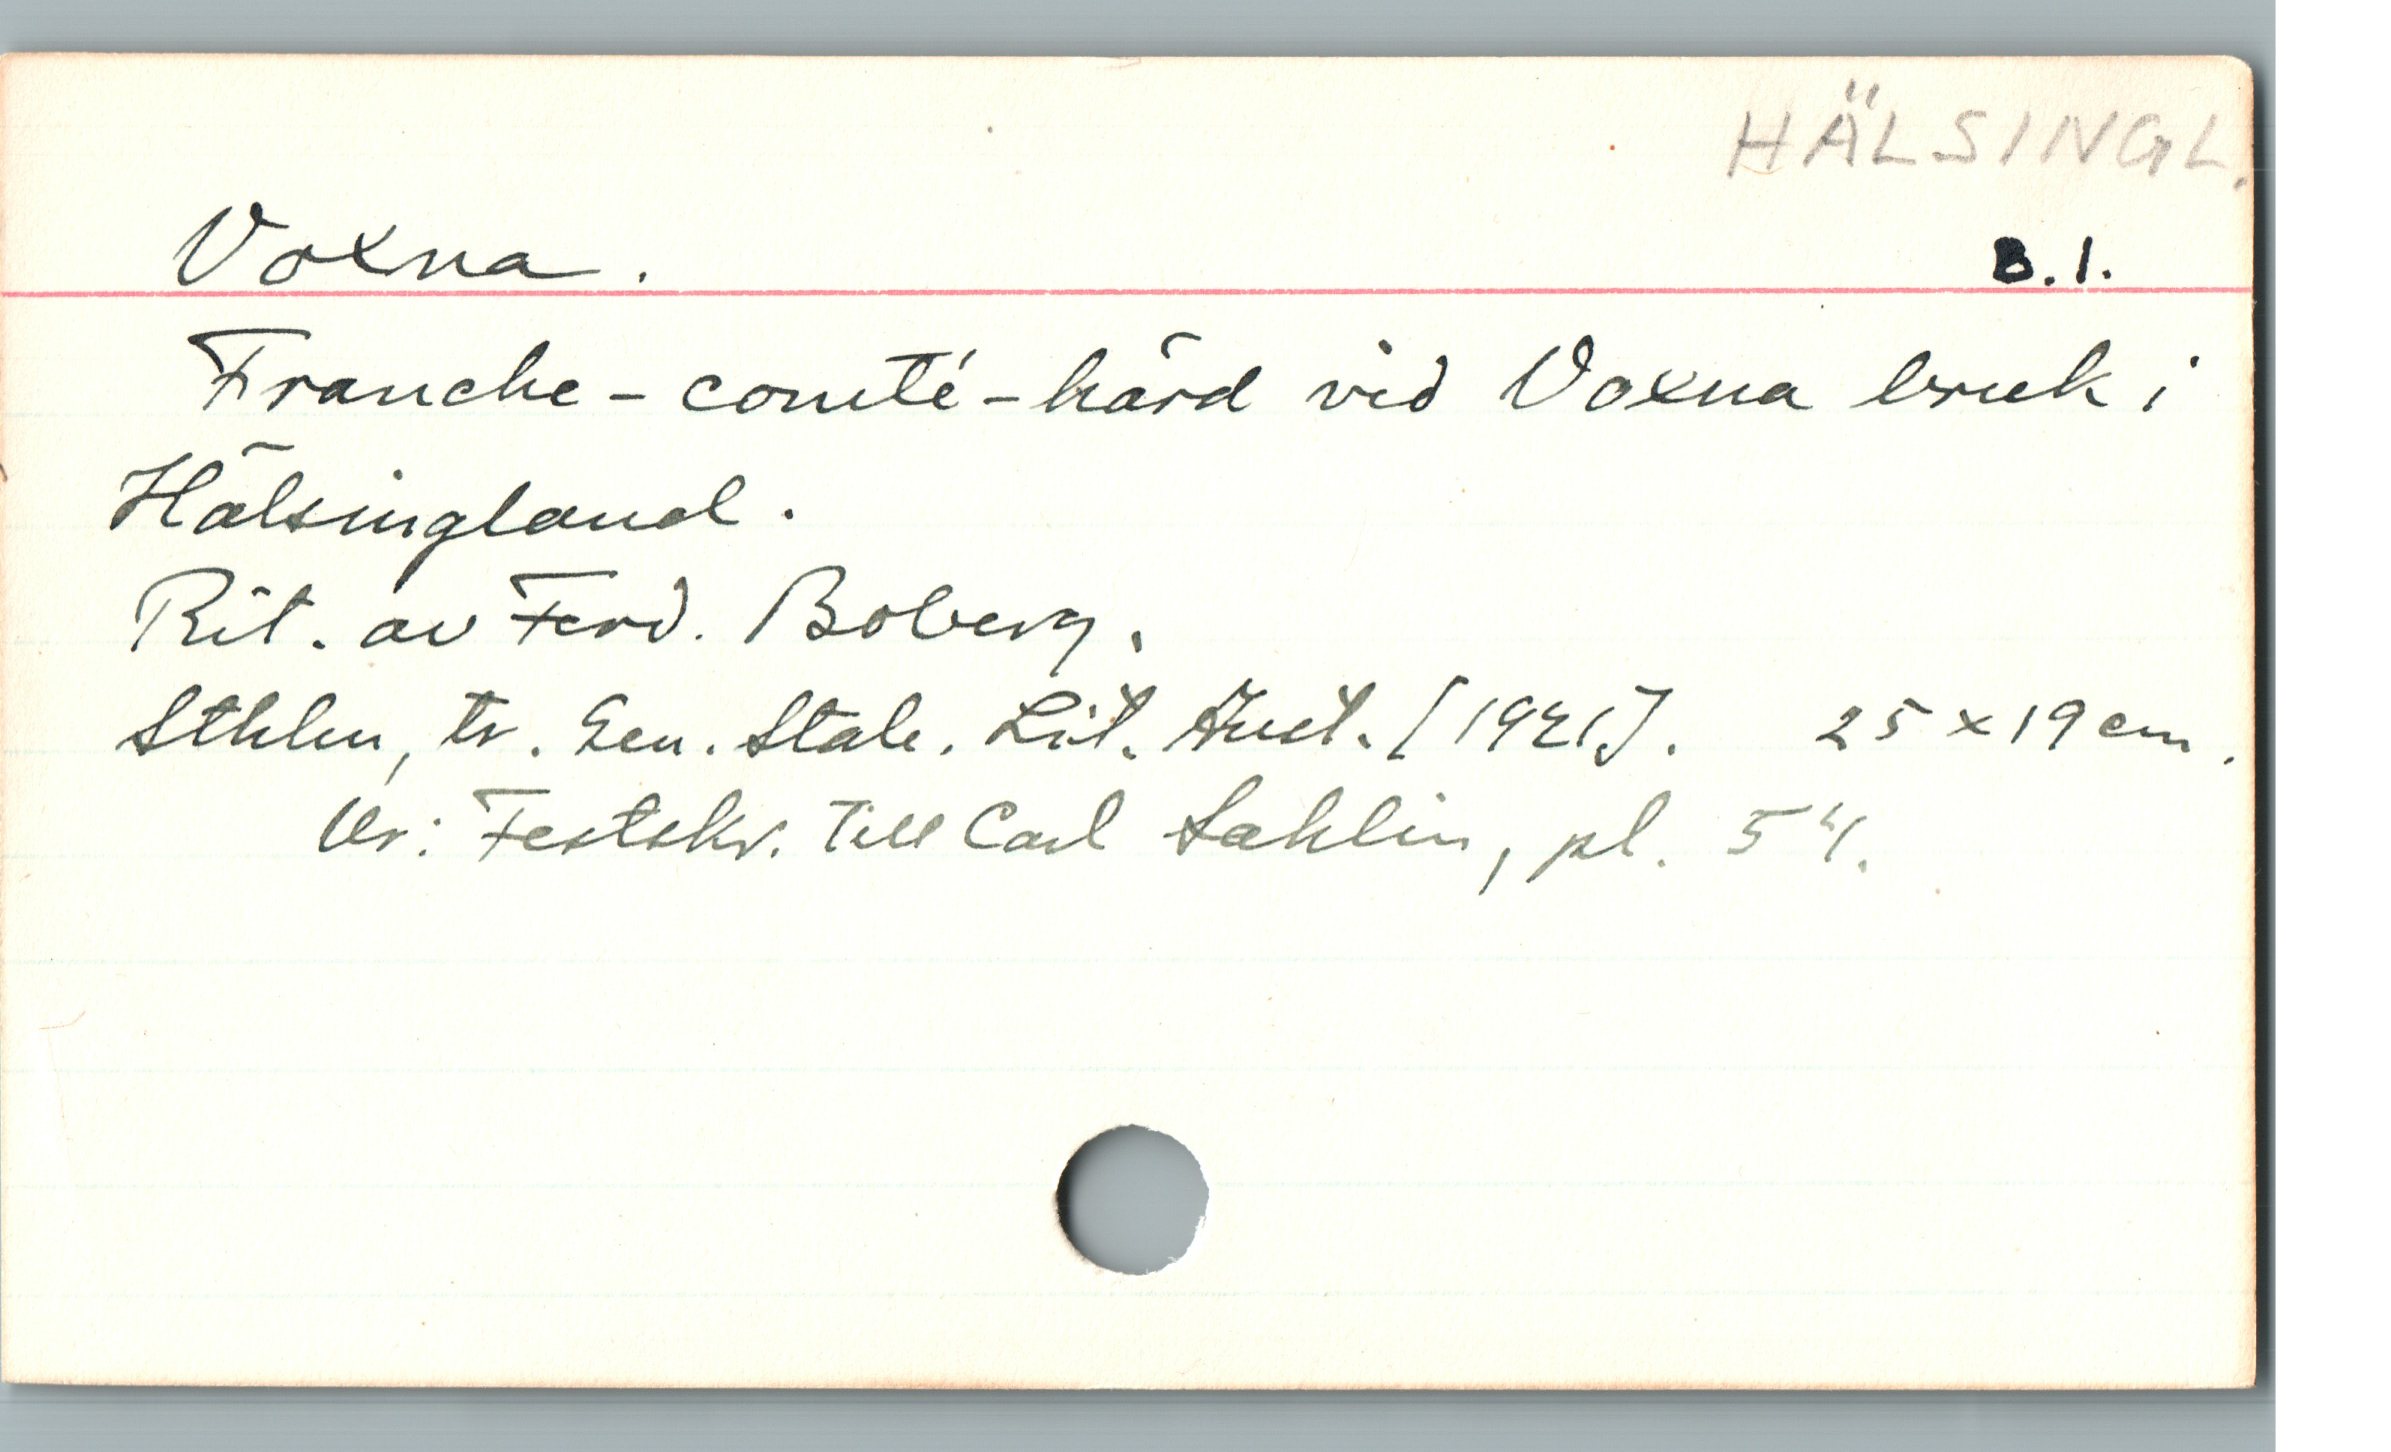 HÄLSINGL.
Voxna. B.1.
Franche-comté-härd vid Voxna bruk i
Hälsingland.
Rit. av Ferd. Boberg.
Sthlm, tr. Gen. Stab. Lit. Anst. [1921]. 25 x 19 cm.
Ur: Festskr. till Carl Sahlin, pl. 54.